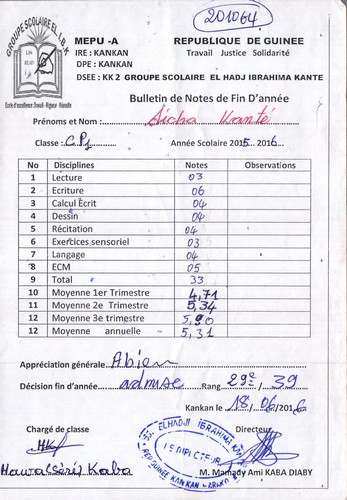 201064
GROUPE SCOLAIRE EL I.B.K
Ecole d'excellence: Travail - Rigueur - Réussite
MEPU -A
IRE : KANKAN
DPE : KANKAN
REPUBLIQUE DE GUINEE
Travail Justice Solidarité
DSEE : KK 2 GROUPE SCOLAIRE EL HADJ IBRAHIMA KANTE
Bulletin de Notes de Fin D'année
Prénoms et Nom : Aicha Kanté
Classe : CP1 Année Scolaire 2015..2016
No Disciplines Notes Observations
1 Lecture 03
2 Ecriture 06
3 Calcul Ecrit 04
4 Dessin 04
5 Récitation 04
6 Exertices sensoriel 03
7 Langage 04
8 ECM 05
9 Total 33
10 Moyenne 1er Trimestre 4,71
11 Moyenne 2e Trimestre 5,34
12 Moyenne 3e trimestre 5,90
12 Moyenne annuelle 5,31
Appréciation générale A bien
Décision fin d'année admise Rang 29e / 39
Kankan le 18 / 06 / 2016
Chargé de classe Directeur
EL HADJ IBRAHIMA
Kaba
M. Mamady Ami KABA DIABY